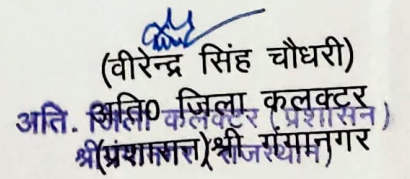 (वीरेन्द्र सिंह चौधरी)
अति0 जिला कलक्टर
(प्रशासन) श्री गंगानगर
अति. जिला कलक्टर (प्रशासन)
श्री राजस्थान)